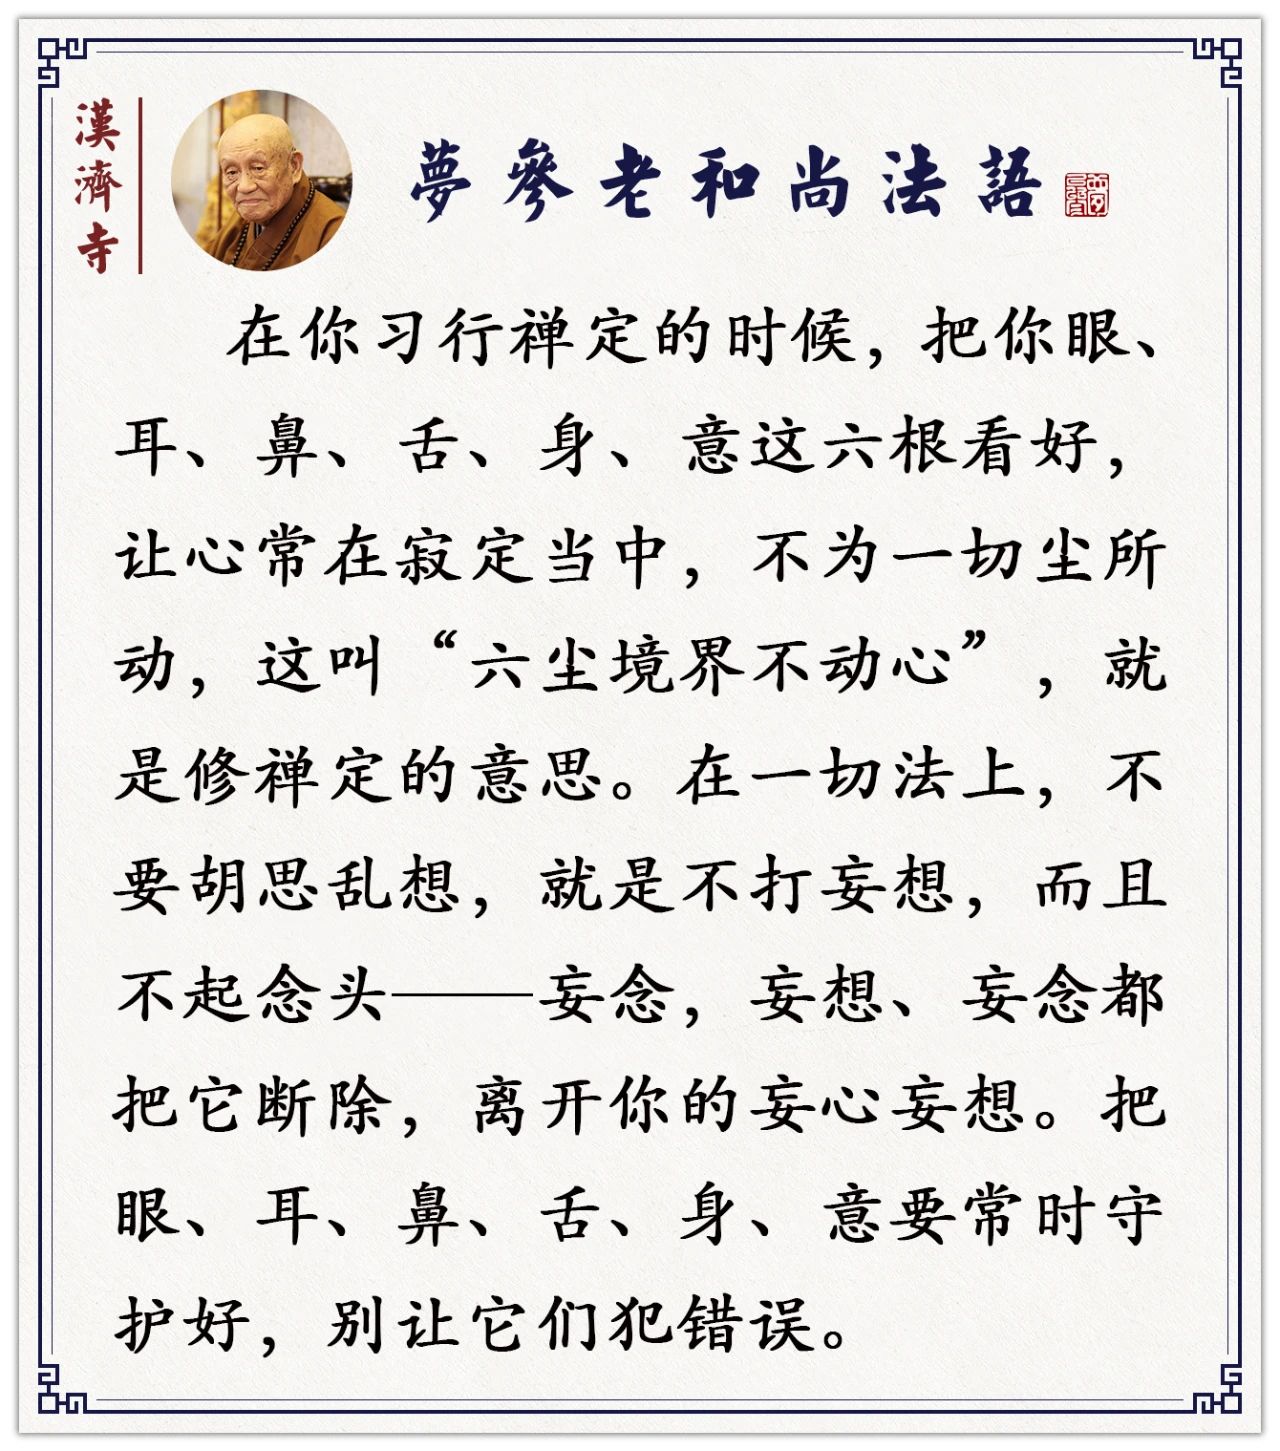 漢濟寺
夢參老和尚法語
在你习行禅定的时候，把你眼、
耳、鼻、舌、身、意这六根看好，
让心常在寂定当中，不为一切尘所
动，这叫“六尘境界不动心”，就
是修禅定的意思。在一切法上，不
要胡思乱想，就是不打妄想，而且
不起念头——妄念，妄想、妄念都
把它断除，离开你的妄心妄想。把
眼、耳、鼻、舌、身、意要常时守
护好，别让它们犯错误。